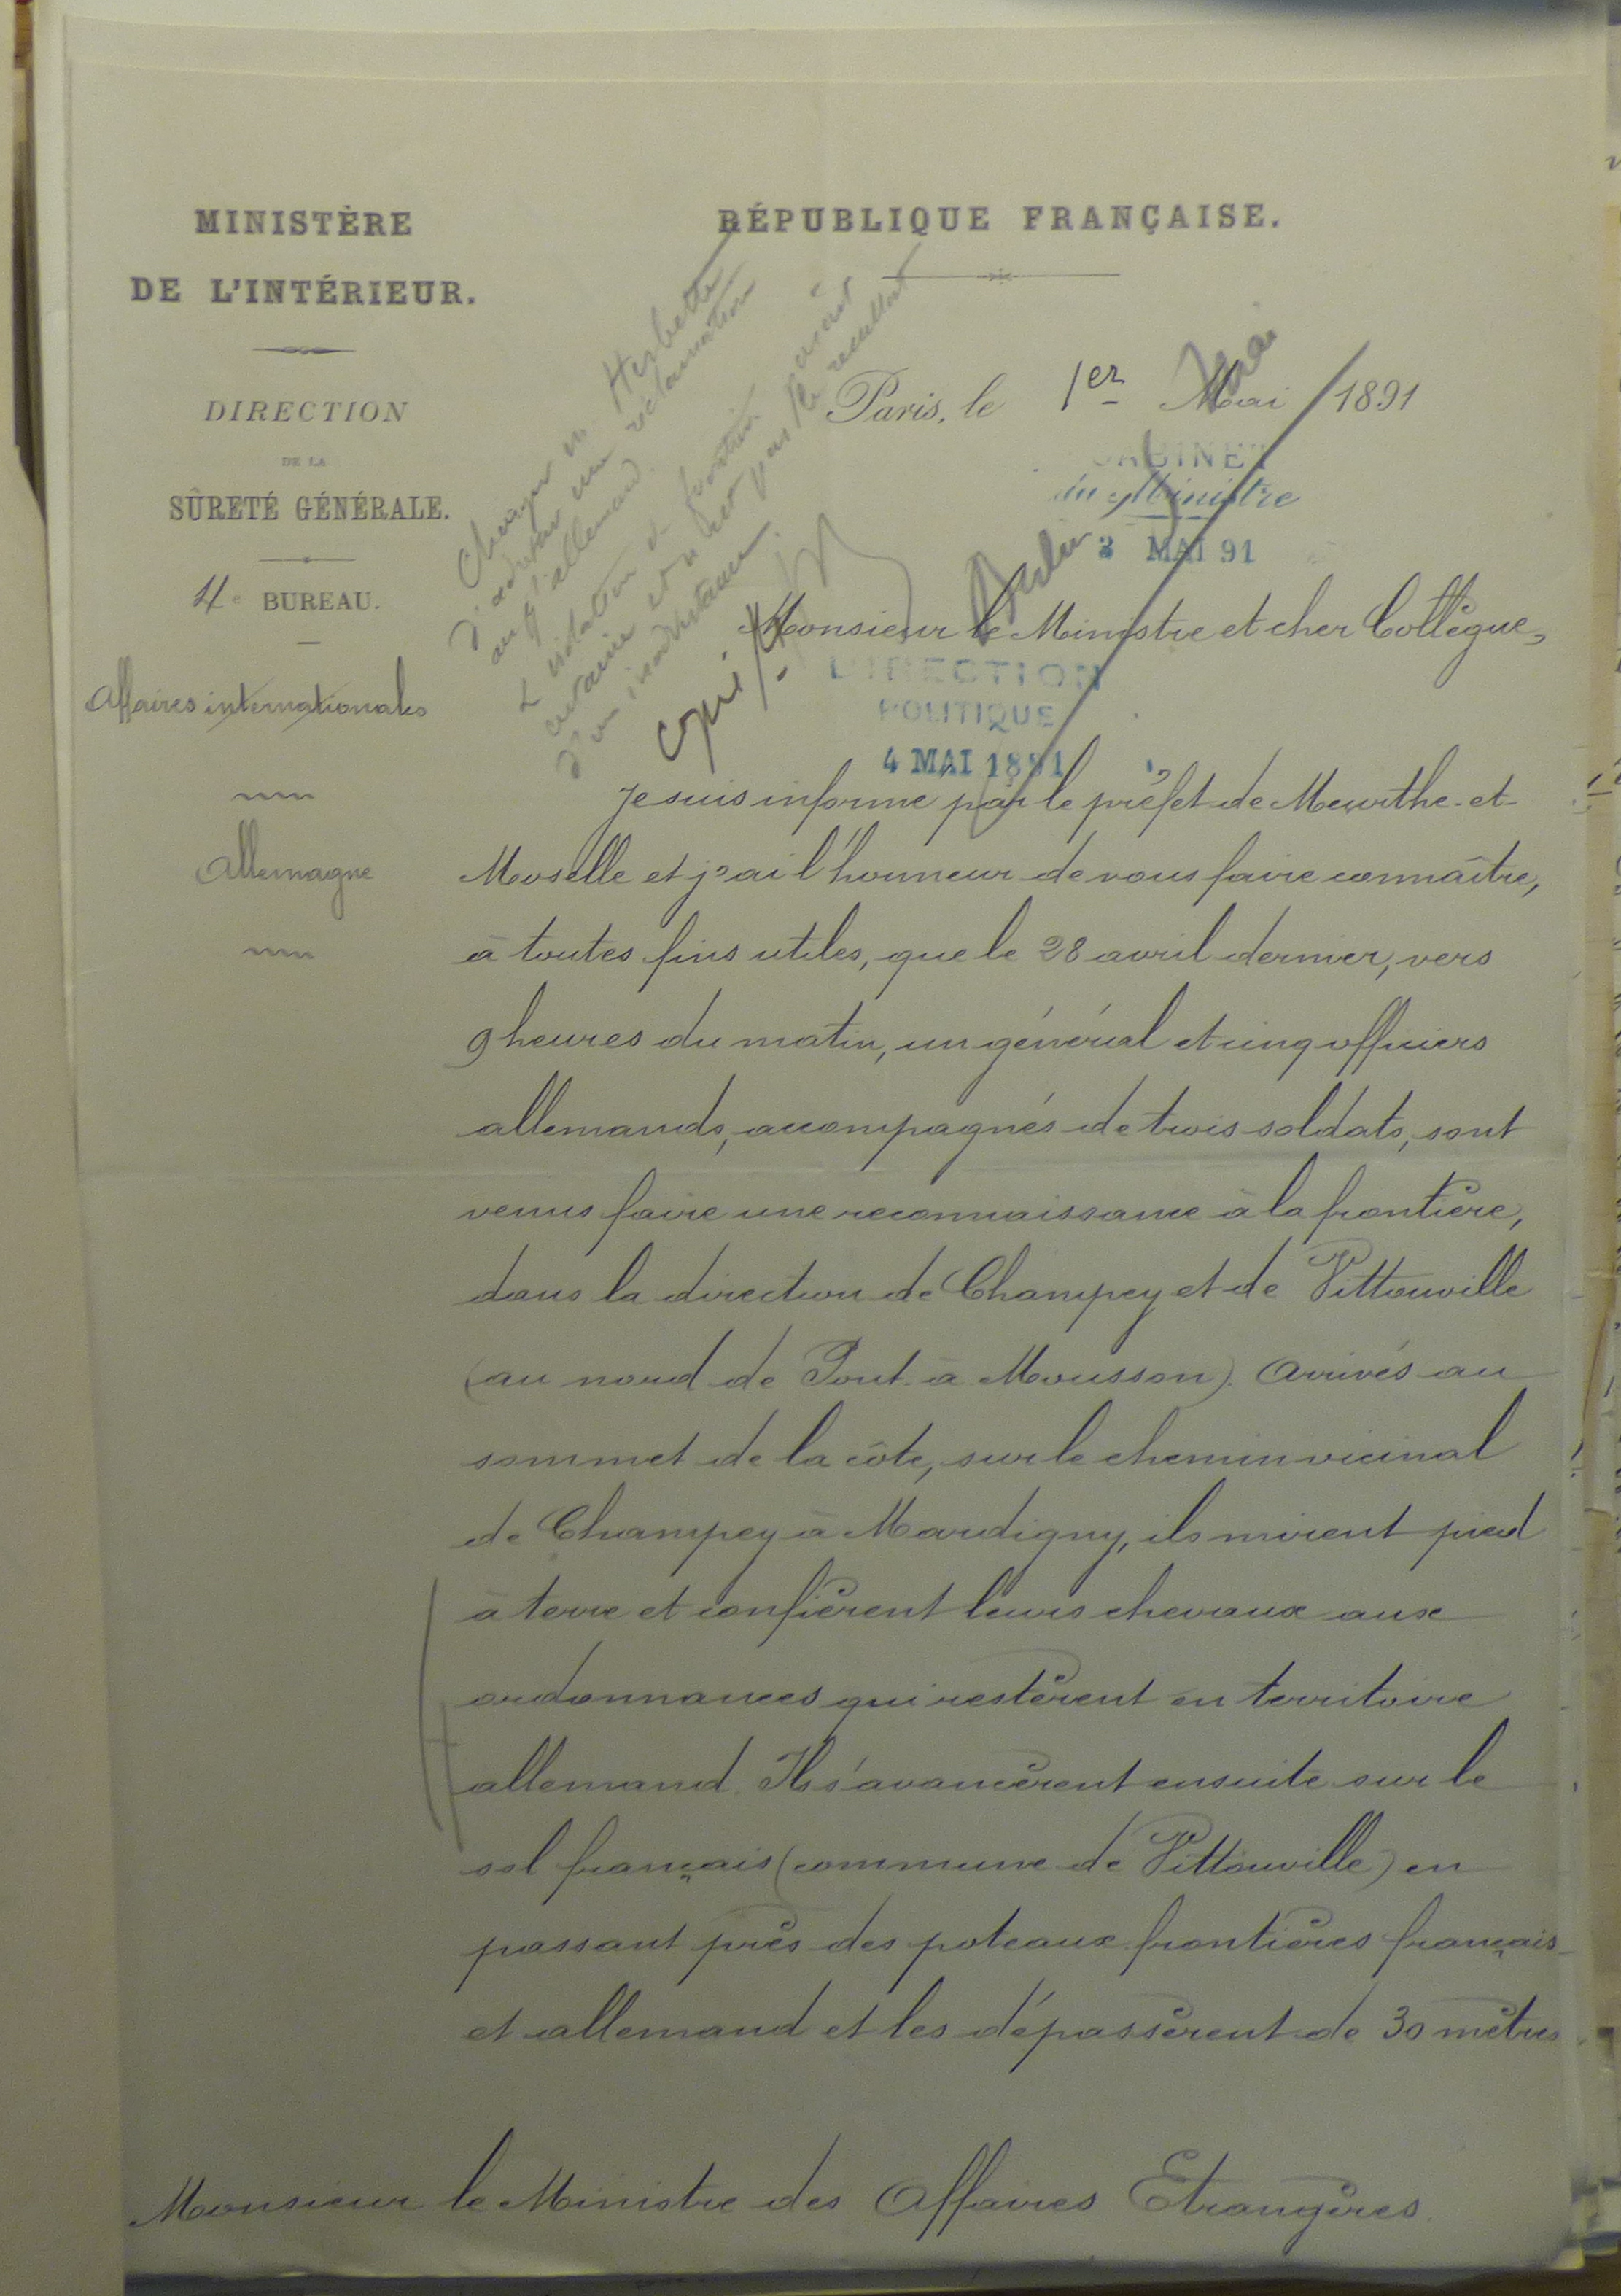 MINISTÈRE
DE L'INTÉRIEUR.
DIRECTION
DE LA
SÛRETÉ GÉNÉRALE.
4e BUREAU.
Affaires internationales
Allemagne
RÉPUBLIQUE FRANÇAISE.
Charger M. Herbette
d'adresser une réclamation
au gt allemand.
La violation de frontière paraît
certaine et n'est pas le résultat
d'une inadvertance.
copié
Paris, le 1er Mai 1891
CABINET
du Ministre
2 MAI 91
Berlin
Monsieur le Ministre et cher Collègue,
DIRECTION
POLITIQUE
4 MAI 1891
Je suis informé par le préfet de Meurthe-et-
Moselle et j'ai l'honneur de vous faire connaître,
à toutes fins utiles, que le 28 avril dernier, vers
9 heures du matin, un général et cinq officiers
allemands, accompagnés de trois soldats, sont
venus faire une reconnaissance à la frontière,
dans la direction de Champey et de Vittonville
(au nord de Pont-à-Mousson). Arrivés au
sommet de la côte, sur le chemin vicinal
de Champey à Mardigny, ils mirent pied
à terre et confièrent leurs chevaux aux
ordonnances qui restèrent en territoire
allemand. Ils s'avancèrent ensuite sur le
sol français (commune de Vittonville) en
passant près des poteaux frontières français
et allemand et les dépassèrent de 30 mètres
Monsieur le Ministre des Affaires Etrangères.